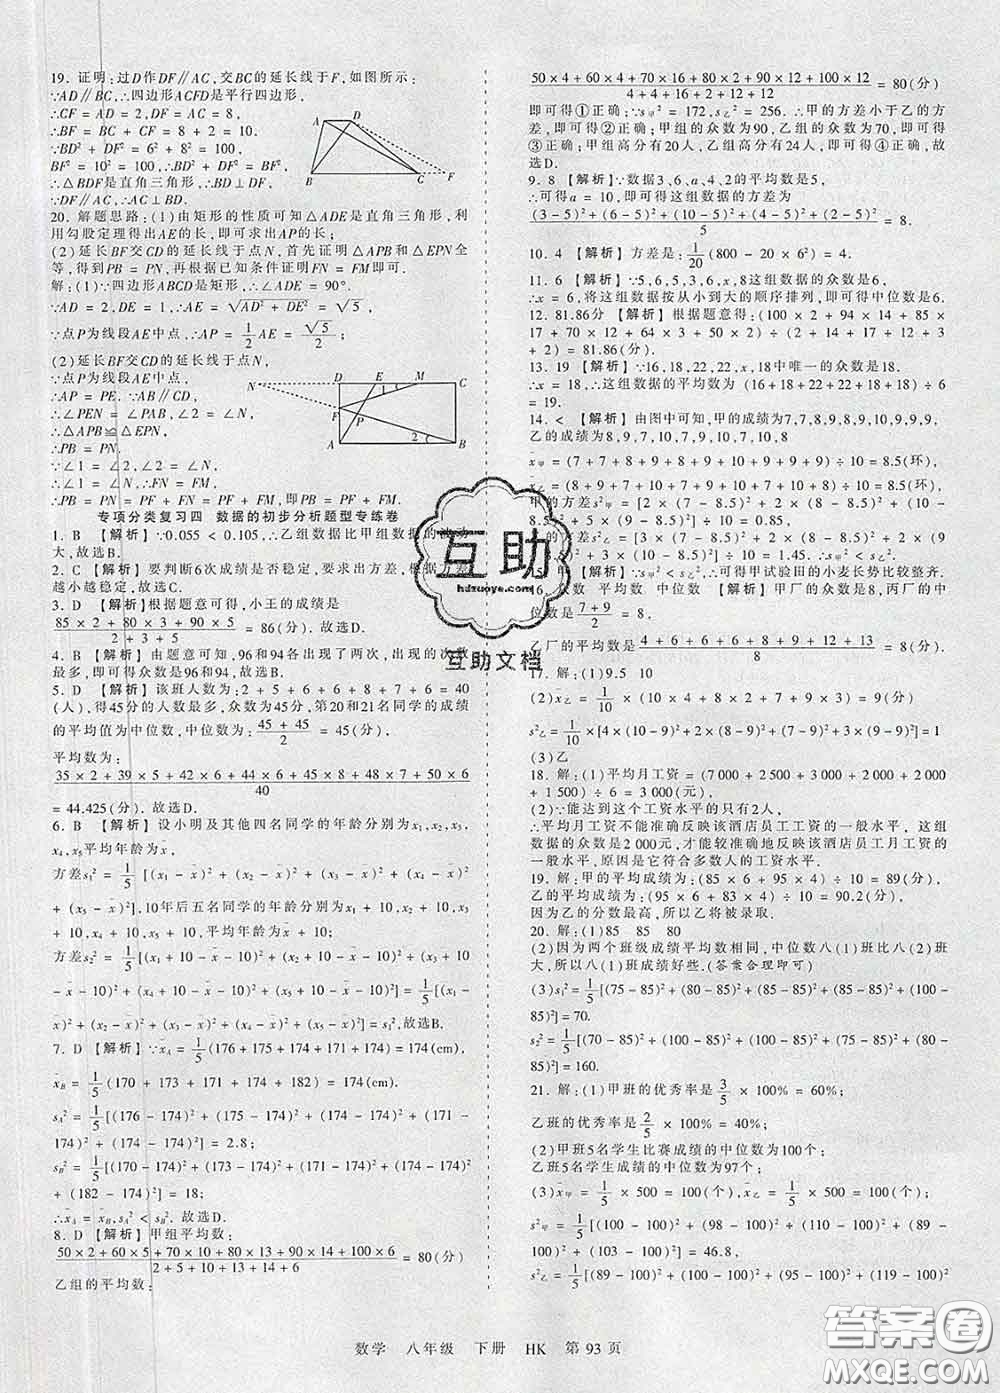 19. 证明:过D作DF∥AC,交BC的延长线于F,如图所示:
∵AD∥BC,∴四边形ACFD是平行四边形,
∴CF = AD = 2,DF = AC = 8,
∴BF = BC + CF = 8 + 2 = 10,
∵BD² + DF² = 6² + 8² = 100,
BF² = 10² = 100,∴BD² + DF² = BF²,
∴△BDF是直角三角形,∴BD⊥DF,
∵DF∥AC,∴AC⊥BD.
A D B C F
20. 解题思路:(1)由矩形的性质可知△ADE是直角三角形,利
用勾股定理得出AE的长,即可求出AP的长;
(2)延长BF交CD的延长线于点N,首先证明△APB和△EPN全
等,得到PB = PN,再通过已知条件证明FN = FM即可.
解:(1)∵四边形ABCD是矩形,∴∠ADE = 90°.
∵AD = 2,DE = 1,∴AE = √(AD² + DE²) = √5,
∵点P为线段AE中点,∴AP = 1/2 AE = √5/2;
(2)延长BF交CD的延长线于点N,
∵点P为线段AE中点,
∴AP = PE. ∵AB∥CD,
∴∠PEN = ∠PAB,∠2 = ∠N,
∴△APB≌△EPN,
∴PB = PN.
∵∠1 = ∠2,∠2 = ∠N,
∴∠1 = ∠N,∴FN = FM,
∴PB = PN = PF + FN = PF + FM,即PB = PF + FM.
N D E M C F P A B 1 2
专项分类复习四 数据的初步分析题型专练卷
1. B 【解析】∵0.055 < 0.105,∴乙组数据比甲组数据的波动
大,故选B.
2. C 【解析】要判断6次成绩是否稳定,要求出方差,根据方差
越小越稳定,故选C.
3. D 【解析】根据题意可得,小王的成绩是
(85 × 2 + 80 × 3 + 90 × 5)/(2 + 3 + 5) = 86(分). 故选D.
4. B 【解析】由题意可知,96和94各出现了两次,出现的次数
最多,即可得出众数是96和94,故选B.
5. D 【解析】该班人数为:2 + 5 + 6 + 6 + 8 + 7 + 6 = 40
(人),得45分的人数最多,众数为45分,第20和21名同学的成绩
的平均值为中位数,中位数为:(45 + 45)/2 = 45(分),
平均数为:
(35 × 2 + 39 × 5 + 42 × 6 + 44 × 6 + 45 × 8 + 48 × 7 + 50 × 6)/40
= 44.425(分). 故选D.
6. B 【解析】设小明及其他四名同学的年龄分别为x₁,x₂,x₃,
x₄,x₅平均年龄为x̄,
方差s₁² = 1/5 [(x₁ − x̄)² + (x₂ − x̄)² + (x₃ − x̄)² + (x₄ − x̄)² +
(x₅ − x̄)²].10年后五名同学的年龄分别为x₁ + 10,x₂ + 10,x₃
+ 10,x₄ + 10,x₅ + 10,平均年龄为x̄ + 10,
方差s₂² = 1/5[(x₁ + 10 − x̄ − 10)² + (x₂ + 10 − x̄ − 10)² + (x₃ + 10
− x̄ − 10)² + (x₄ + 10 − x̄ − 10)² + (x₅ + 10 − x̄ − 10)²] = 1/5[(x₁ −
x̄)² + (x₂ − x̄)² + (x₃ − x̄)² + (x₄ − x̄)² + (x₅ − x̄)²] = s₁²,故选B.
7. D 【解析】∵x̄A = 1/5(176 + 175 + 174 + 171 + 174) = 174(cm),
x̄B = 1/5(170 + 173 + 171 + 174 + 182) = 174(cm).
sA² = 1/5[(176 − 174)² + (175 − 174)² + (174 − 174)² + (171 −
174)² + (174 − 174)²] = 2.8;
sB² = 1/5[(170 − 174)² + (173 − 174)² + (171 − 174)² + (174 − 174)²
+ (182 − 174)²] = 18;
∴x̄A = x̄B,sA² < sB². 故选D.
8. D 【解析】甲组平均数:
(50 × 2 + 60 × 5 + 70 × 10 + 80 × 13 + 90 × 14 + 100 × 6)/(2 + 5 + 10 + 13 + 14 + 6) = 80(分)
乙组的平均数:
(50 × 4 + 60 × 4 + 70 × 16 + 80 × 2 + 90 × 12 + 100 × 12)/(4 + 4 + 16 + 2 + 12 + 12) = 80(分)
即可得①正确;∵s甲² = 172,s乙² = 256. ∴甲的方差小于乙的方
差,即可得②正确;甲组的众数为90,乙组的众数为70,即可得
③正确;甲组高分有20人,乙组高分有24人,即可得④正确;故
选D.
9. 8 【解析】∵数据3、6、a、4、2的平均数是5,
∴可得a = 10,即可得这组数据的方差是
((3 − 5)² + (6 − 5)² + (10 − 5)² + (4 − 5)² + (2 − 5)²)/5 = 8.
10. 4 【解析】方差是:1/20(800 − 20 × 6²) = 4.
11. 6 【解析】∵5,6,5,3,6,x,8这组数据的众数是6,
∴x = 6,将这组数据按从小到大的顺序排列,即可得中位数是6.
12. 81.86分 【解析】根据题意得:(100 × 2 + 94 × 14 + 85 ×
17 + 70 × 12 + 64 × 3 + 50 × 2) ÷ (2 + 14 + 17 + 12 + 3 +
2) = 81.86(分).
13. 19 【解析】∵16,18,22,22,x,18中唯一的众数是18.
∴x = 18,∴这组数据的平均数为 (16 + 18 + 22 + 22 + 18 + 18) ÷ 6
= 19.
14. < 【解析】由图中可知,甲的成绩为7,7,8,9,8,9,10,9,9,9,
乙的成绩为8,9,7,10,7,10,7,10,8
x̄甲 = (7 + 7 + 8 + 9 + 8 + 9 + 10 + 9 + 9 + 9) ÷ 10 = 8.5(环),
÷ 10 = 8.5(环),
甲的方差s²甲 = [2 × (7 − 8.5)² + 2 × (8 −
8.5)² + (10 − 8.5)² + 5 × (9 − 8.5)²] ÷ 10 = 0.85,
的方差s²乙 = [3 × (7 − 8.5)² + 2 × (8 − 8.5)² + 2 × (9
10 = 1.45. ∴s²甲 < s²乙.
15. 【解析】∵s甲² < s乙²,∴可得甲试验田的小麦长势比较整齐.
16. 众数 平均数 中位数 【解析】甲厂的众数是8,丙厂的中
位数是(7 + 9)/2 = 8,
乙厂的平均数是(4 + 6 + 6 + 6 + 8 + 9 + 12 + 13)/8 = 8.
17. 解:(1)9.5 10
(2)x̄乙 = 1/10 × (10 × 4 + 8 × 2 + 7 + 9 × 3) = 9(分)
s²乙 = 1/10 ×[4 × (10 − 9)² + 2 × (8 − 9)² + (7 − 9)² + 3 × (9 − 9)²] = 1
(3)乙
18. 解:(1)平均月工资 = (7 000 + 2 500 + 3 000 + 2 000 + 2 000
+ 1 500) ÷ 6 = 3 000(元),
(2)∵能达到这个工资水平的只有2人,
∴平均月工资不能准确反映该酒店员工工资的一般水平,这组
数据的众数是2 000元,才能较准确地反映该酒店员工月工资的
一般水平,原因是它符合多数人的工资水平.
19. 解:甲的平均成绩为:(85 × 6 + 95 × 4) ÷ 10 = 89(分),
乙的平均成绩为:(95 × 6 + 83 × 4) ÷ 10 = 90.2(分),
因为乙的分数最高,所以乙将被录取.
20. 解:(1)85 85 80
(2)因为两个班级成绩平均数相同,中位数八(1)班比八(2)班
大,所以八(1)班成绩好些.(答案合理即可)
(3)s₁² = 1/5[(75 − 85)² + (80 − 85)² + (85 − 85)² + (85 − 85)² + (100 −
85)²] = 70.
s₂² = 1/5[(70 − 85)² + (100 − 85)² + (100 − 85)² + (75 − 85)² + (80 −
85)²] = 160.
21. 解:(1)甲班的优秀率是3/5 × 100% = 60%;
乙班的优秀率是2/5 × 100% = 40%;
(2)甲班5名学生比赛成绩的中位数为100个;
乙班5名学生成绩的中位数为97个;
(3)x̄甲 = 1/5 × 500 = 100(个),x̄乙 = 1/5 × 500 = 100(个);
s²甲 = 1/5[(100 − 100)² + (98 − 100)² + (110 − 100)² + (89 −
100)² + (103 − 100)²] = 46.8,
s²乙 = 1/5[(89 − 100)² + (100 − 100)² + (95 − 100)² + (119 − 100)²
数学 八年级 下册 HK 第 93 页
互助
hdzuoye.com
互助文档
答案圈
MXQE.COM